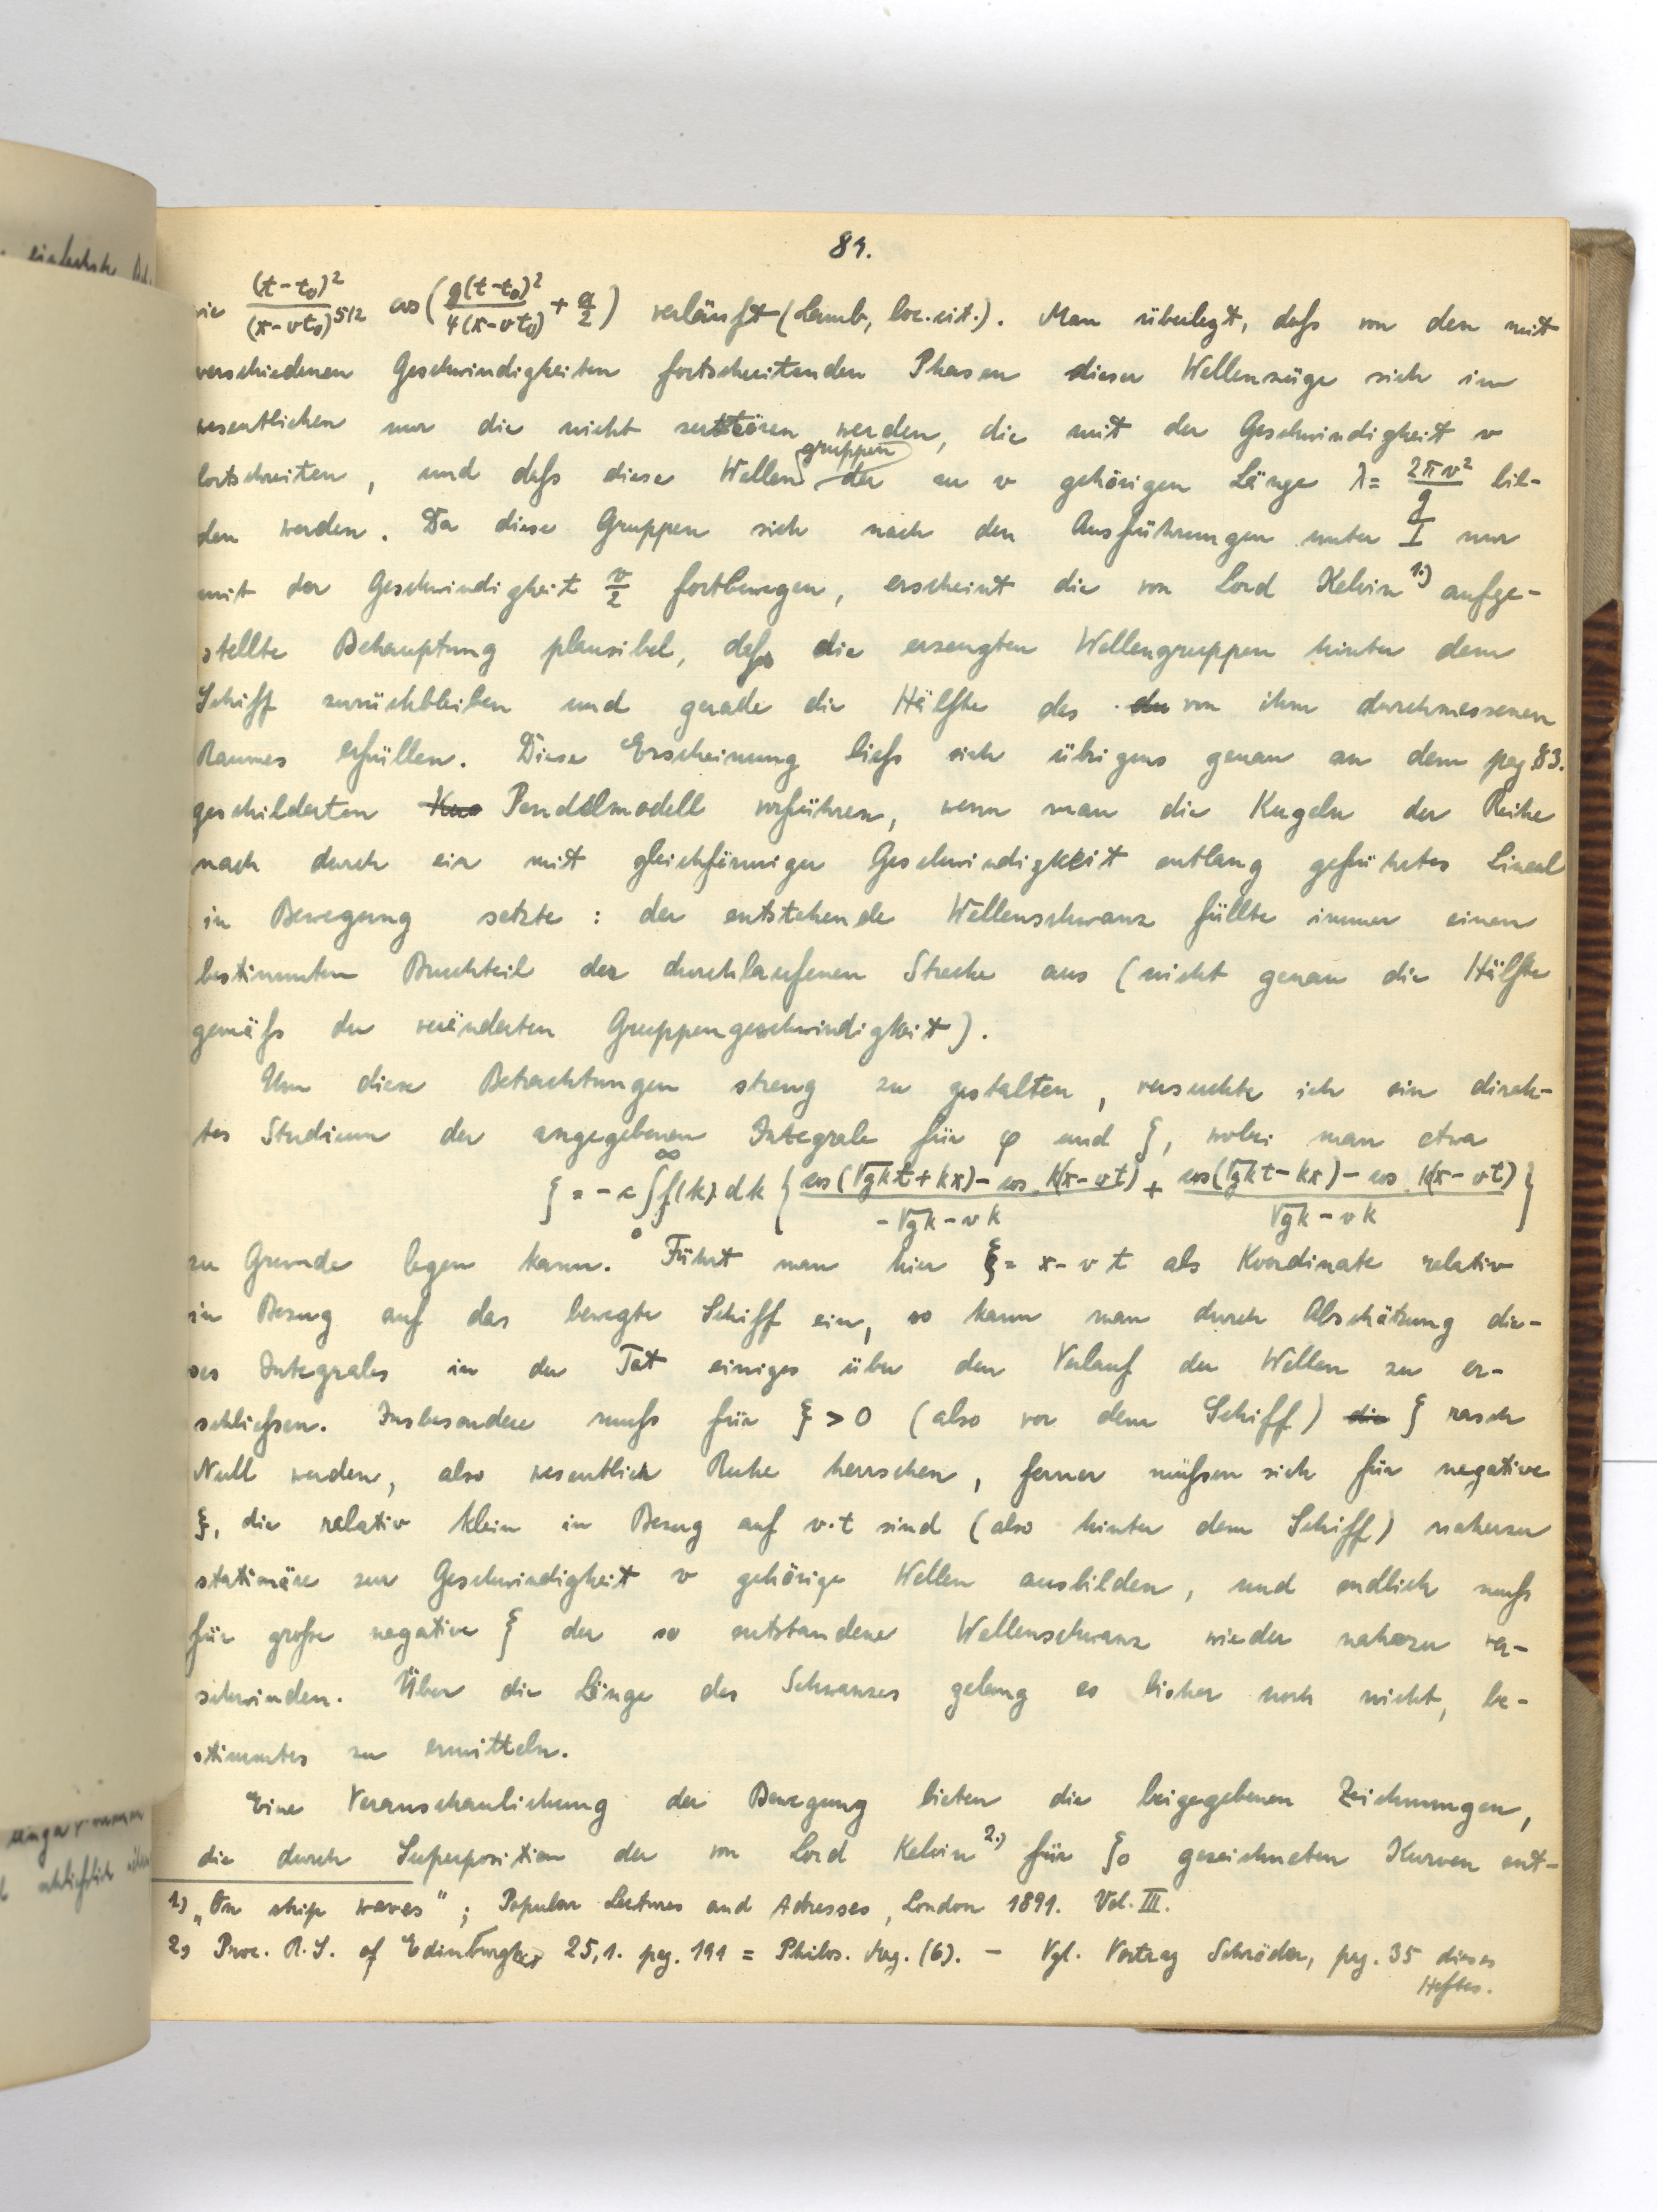 89.
wie (t-t₀)²/(x-vt₀)^5/2 cos(g(t-t₀)²/4(x-vt₀) + α/2) verläuft (Lamb, loc.cit.). Man überlegt, daſs von den mit
verschiedenen Geschwindigkeiten fortschreitenden Phasen dieser Wellenzüge sich im
wesentlichen nur die nicht zerstören werden, die mit der Geschwindigkeit v
fortschreiten, und daſs diese Wellengruppen der zu v gehörigen Länge λ = 2πv²/g bil-
den werden. Da diese Gruppen sich nach den Ausführungen unter I nur
mit der Geschwindigkeit v/2 fortbewegen, erscheint die von Lord Kelvin 1.) aufge-
stellte Behauptung plausibel, daſs die erzeugten Wellengruppen hinter dem
Schiff zurückbleiben und gerade die Hälfte des von ihm durchmessenen
Raumes erfüllen. Diese Erscheinung lieſs sich übrigens genau an dem pag. 83.
geschilderten Pendelmodell vorführen, wenn man die Kugeln der Reihe
nach durch ein mit gleichförmiger Geschwindigkeit entlang geführtes Lineal
in Bewegung setzte : der entstehende Wellenschwanz füllte immer einen
bestimmten Bruchteil der durchlaufenen Strecke aus (nicht genau die Hälfte
gemäſs der veränderten Gruppengeschwindigkeit).
Um diese Betrachtungen streng zu gestalten, versuchte ich ein direk-
tes Studium der angegebenen Integrale für φ und ζ, wobei man etwa
ζ = -c ∫₀^∞ f(k) dk { cos(√gk t + kx) - cos k(x-vt) / -√gk - vk + cos(√gk t - kx) - cos k(x-vt) / √gk - vk }
zu Grunde legen kann. Führt man hier ξ = x-vt als Koordinate relativ
in Bezug auf das bewegte Schiff ein, so kann man durch Abschätzung die-
ses Integrales in der Tat einiges über den Verlauf der Wellen zu er-
schlieſsen. Insbesondere muſs für ξ > 0 (also vor dem Schiff) ζ rasch
Null werden, also wesentlich Ruhe herrschen, ferner müſsen sich für negative
ξ, die relativ klein in Bezug auf v·t sind (also hinter dem Schiff) nahezu
stationäre zur Geschwindigkeit v gehörige Wellen ausbilden, und endlich muſs
für groſse negative ξ der so entstandene Wellenschwanz wieder nahezu ver-
schwinden. Über die Länge des Schwanzes gelang es bisher noch nicht, be-
stimmtes zu ermitteln.
Eine Veranschaulichung der Bewegung bieten die beigegebenen Zeichnungen,
die durch Superposition der von Lord Kelvin 2.) für ζ₀ gezeichneten Kurven ent-
1) „On ship waves"; Popular Lectures and Adresses, London 1891. Vol. III.
2) Proc. R. S. of Edinburgh 25,1. pag. 191 = Philos. Mag. (6). – Vgl. Vortrag Schröder, pag. 35 dieses
Heftes.